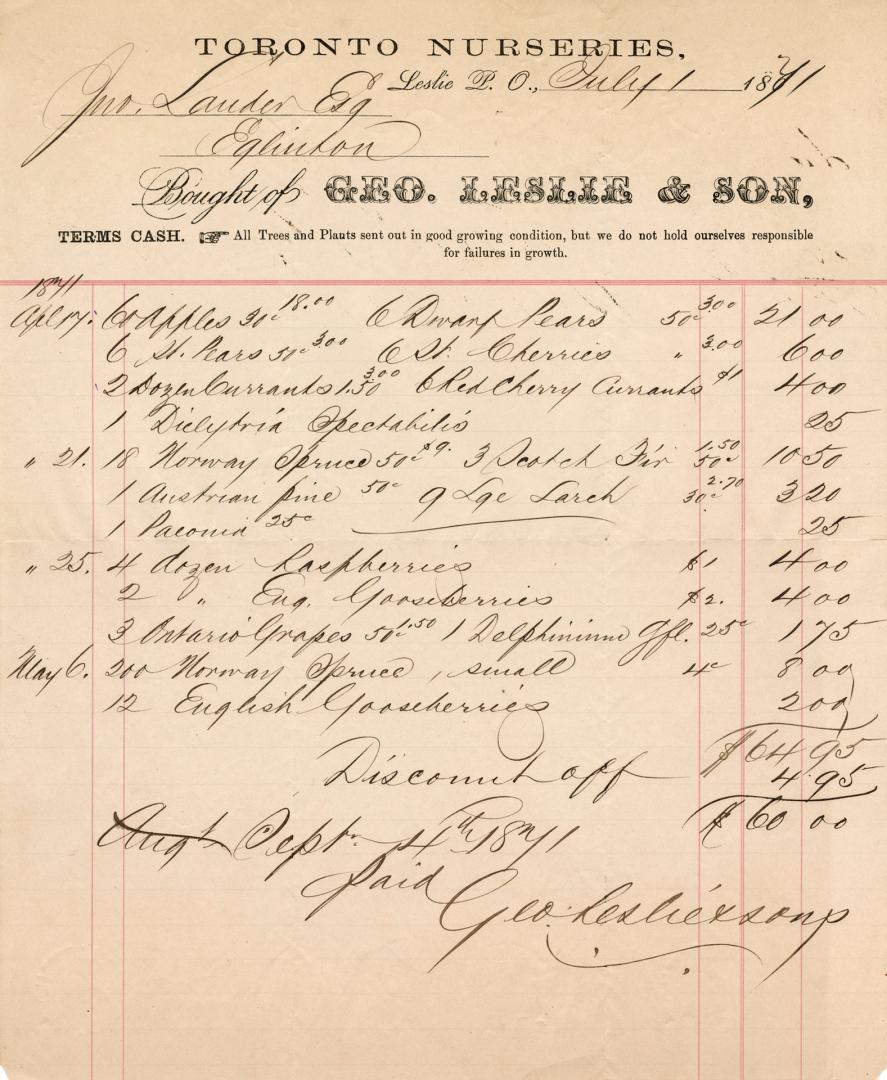 TORONTO NURSERIES,
Leslie P. O., July 1 1871
Jno. Lauder Esq
Eglinton
Bought of GEO. LESLIE & SON,
TERMS CASH. ☞ All Trees and Plants sent out in good growing condition, but we do not hold ourselves responsible
for failures in growth.
1871
Apl 17. 60 Apples 30c 18.00 6 Dwarf Pears 50c 3.00 21 00
6 St. Pears 50c 3.00 6 St. Cherries " 3.00 6 00
2 Dozen Currants 1.50 3.00 6 Red Cherry Currants $1 4 00
1 Dielytria Spectabilis 25
" 21. 18 Norway Spruce 50c $9. 3 Scotch Fir 50c 1.50 10 50
1 Austrian pine 50c 9 Lge Larch 30c 2.70 3 20
1 Paeonia 25c 25
" 25. 4 dozen Raspberries $1 4 00
2 " Eng. Gooseberries $2. 4 00
3 Ontario Grapes 50c 1.50 1 Delphinium Gfl. 25c 1 75
May 6. 200 Norway Spruce, small 4c 8 00
12 English Gooseberries 2 00
$64 95
Discount off 4.95
$60 00
Augt Sept. 4th 1871
Paid
Geo. Leslie & sons